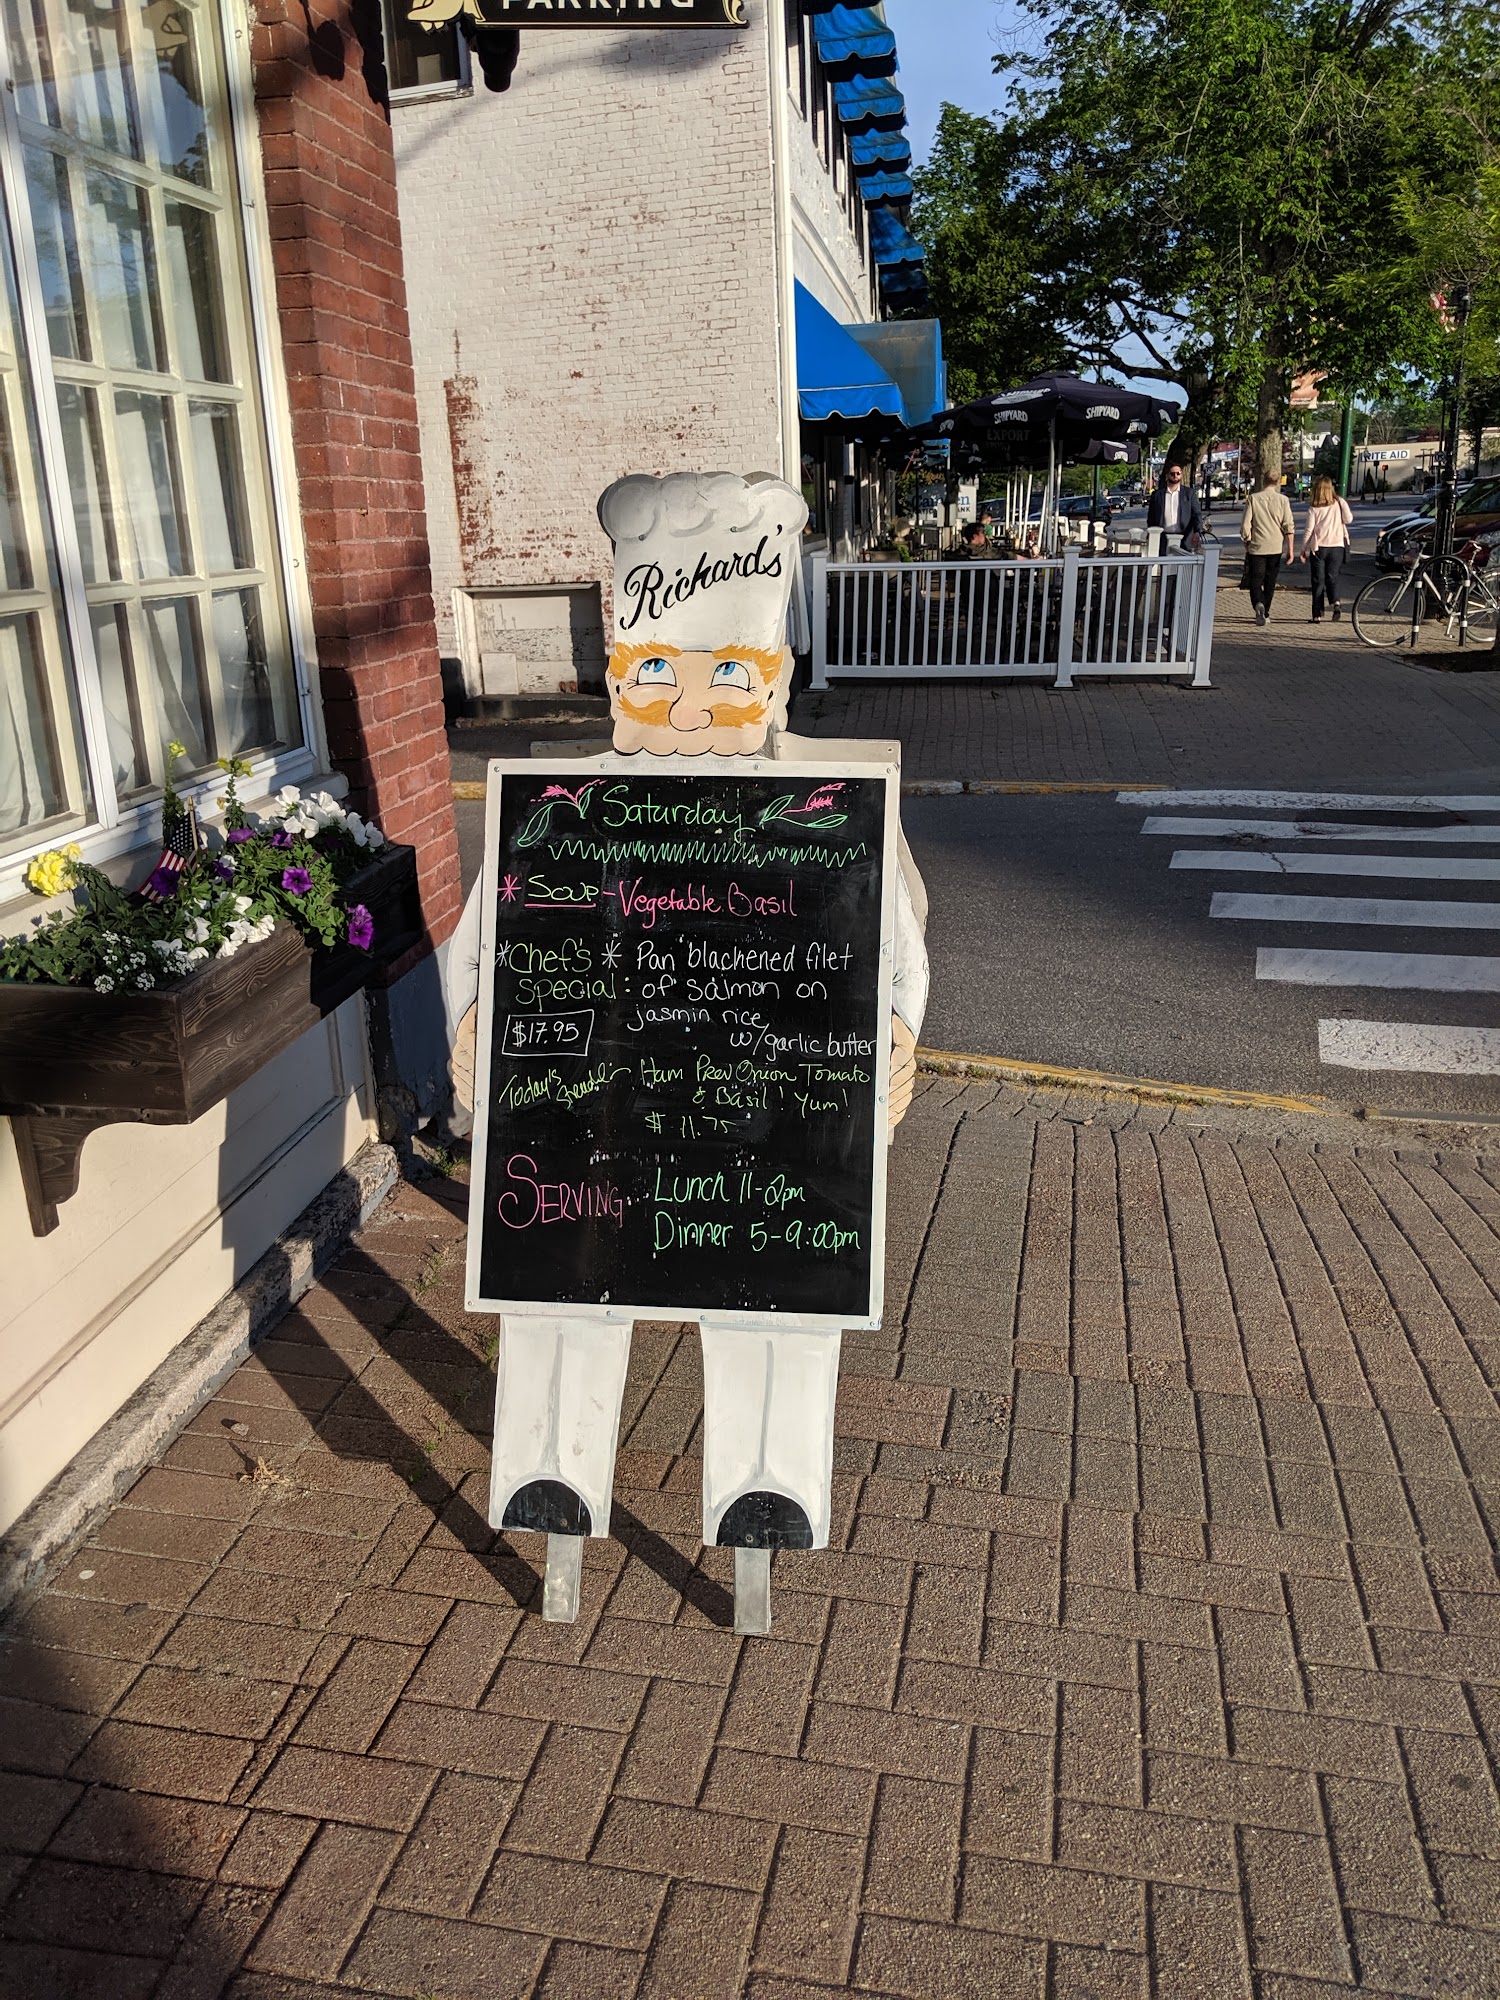 PARKING
Richard's
Saturday
* Soup - Vegetable Basil
*Chef's * Pan blackened filet
Special: of salmon on
$17.95 jasmin rice
w/garlic butter
Today's Ham Onion Tomato
& Basil! Yum!
$ 11.75
SERVING... Lunch 11-2pm
Dinner 5-9:00pm
SHIPYARD
SHIPYARD
EXPORT
RITE AID